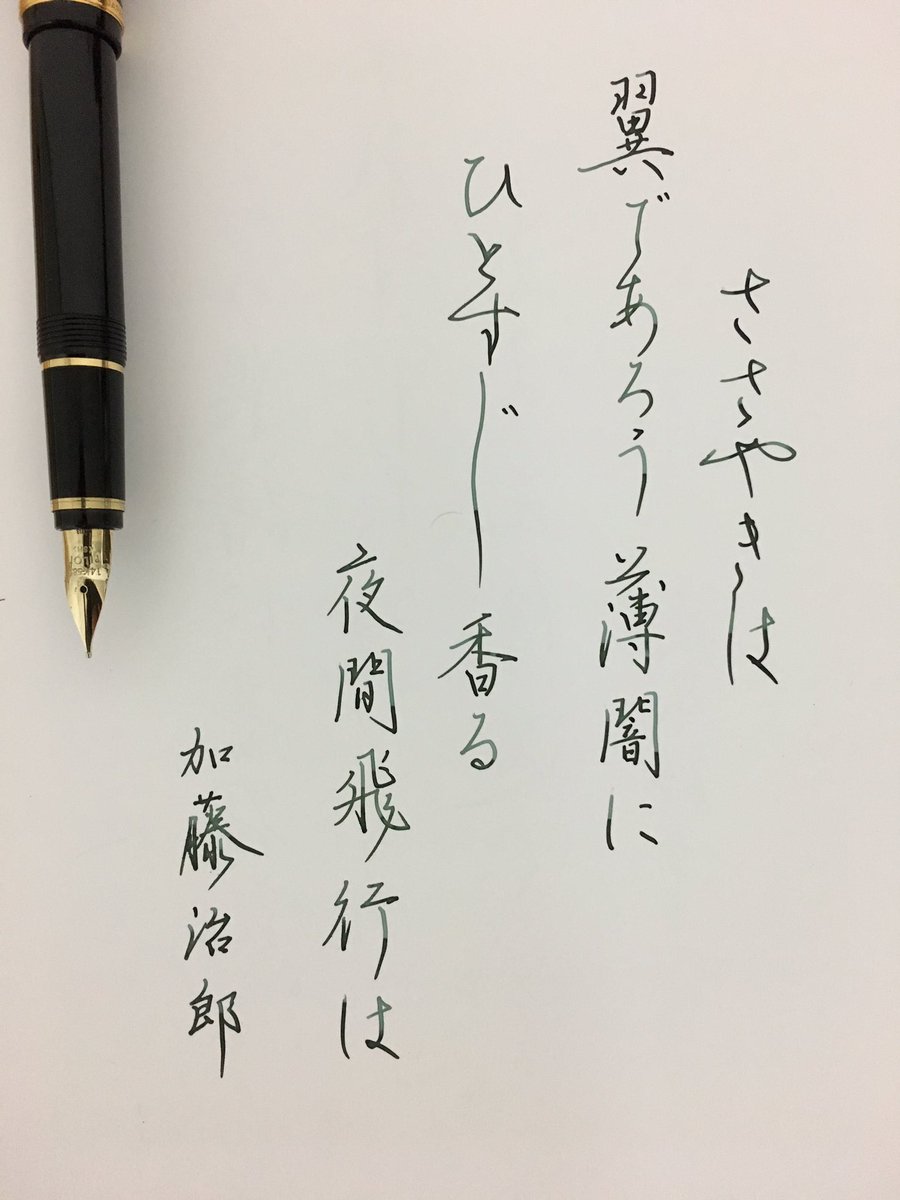 ささやきは
翼であろう薄闇に
ひとすじ香る
夜間飛行は
加藤治郎